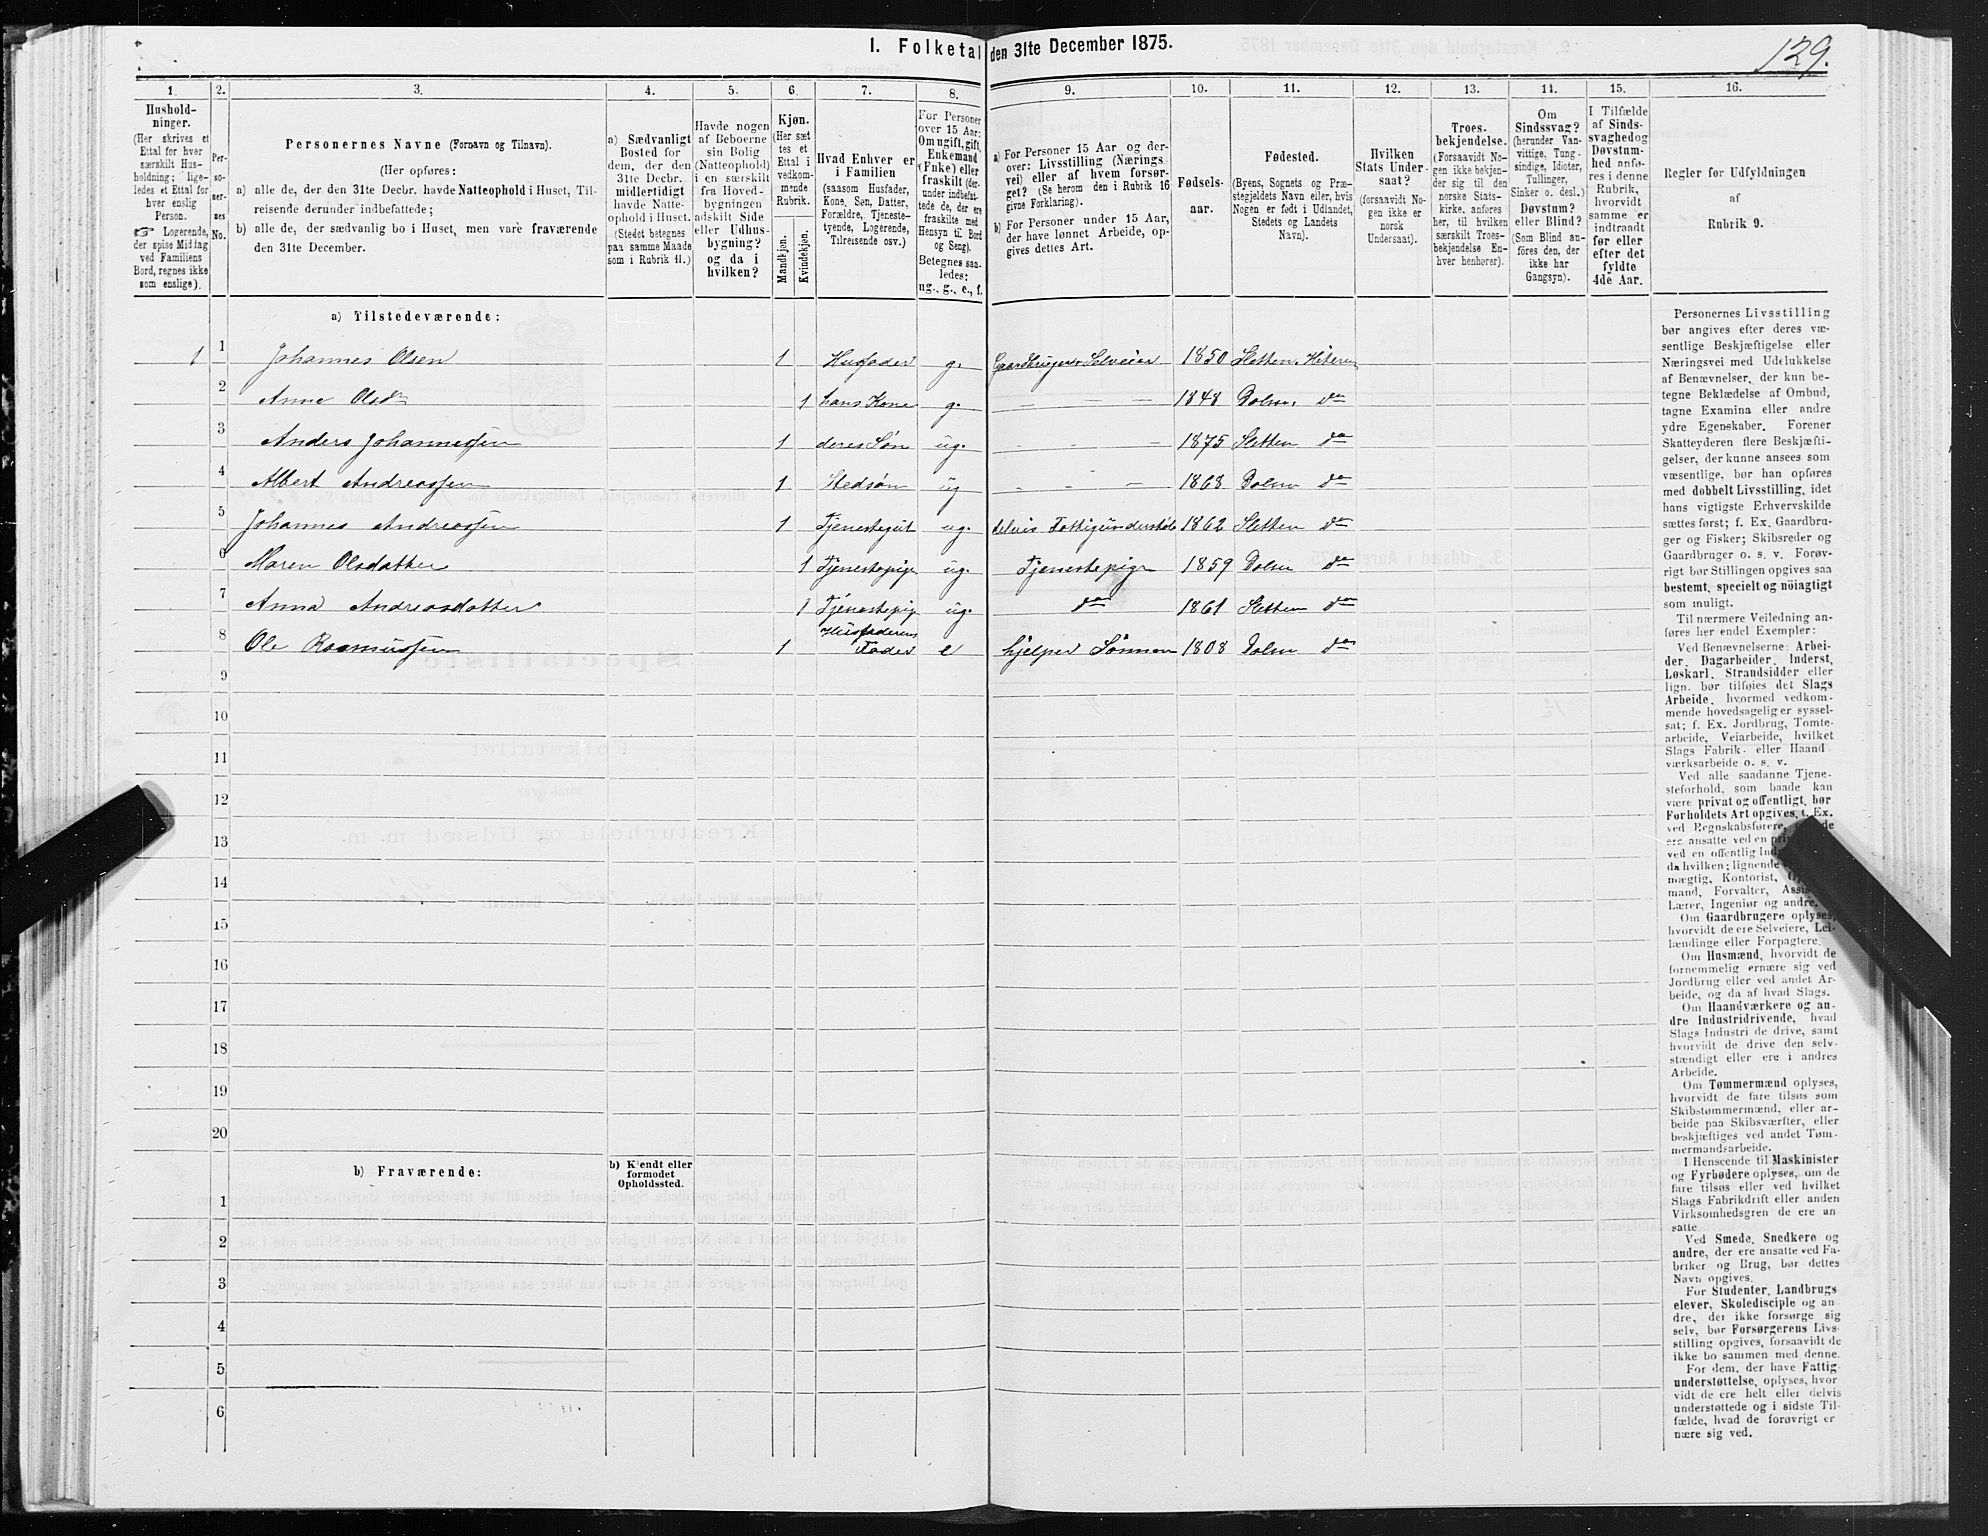 I. Folketal den 31te December 1875.
129.
1. 2. 3. 4. 5. 6. 7. 8. 9. 10. 11. 12. 13. 14. 15. 16.
Hushold-
ninger.
(Her skrives et
Ettal for hver
særskilt Hus-
holdning; lige-
ledes et Ettal for
hver enslig
Person.
☞ Logerende,
der spise Middag
ved Familiens
Bord, regnes ikke
som enslige).
Per-
so-
ner-
nes
No.
Personernes Navne (Fornavn og Tilnavn).
(Her opføres:
a) alle de, der den 31te Decbr. havde Natteophold i Huset, Til-
reisende derunder indbefattede;
b) alle de, der sædvanlig bo i Huset, men vare fraværende
den 31te December.
a) Sædvanligt
Bosted for
dem, der den
31te Decbr.
midlertidigt
havde Natte-
ophold i Huset.
(Stedet betegnes
paa samme Maade
som i Rubrik 11.)
Havde nogen
af Beboerne
sin Bolig
(Natteophold)
i en særskilt
fra Hoved-
bygningen
adskilt Side
eller Udhus-
bygning?
og da i
hvilken?
Kjøn.
(Her sæt
tes et
Ettal i
vedkom-
mende
Rubrik.
Mandkjøn.
Kvindekjøn.
Hvad Enhver er
i Familien
(saasom Husfader,
Kone, Søn, Datter,
Forældre, Tjeneste-
tyende, Logerende,
Tilreisende osv.)
For Personer
over 15 Aar:
Om ugift, gift,
Enkemand
(Enke) eller
fraskilt (der-
under indbefat-
tede de, der ere
fraskilte med
Hensyn til Bord
og Seng).
Betegnes saa-
ledes:
ug., g., e., f.
a) For Personer 15 Aar og der-
over: Livsstilling (Nærings
vei) eller af hvem forsør-
get? (Se herom den i Rubrik 16
givne Forklaring).
b) For Personer under 15 Aar,
der have lønnet Arbeide, op-
gives dettes Art.
Fødsels-
aar.
Fødested.
(Byens, Sognets og Præ-
stegjeldets Navn eller, hvis
Nogen er født i Udlandet,
Stedets og Landets
Navn).
Hvilken
Stats Under-
saat?
(forsaavidt No-
gen ikke er
norsk
Undersaat).
Troes-
bekjendelse.
(Forsaavidt No-
gen ikke bekjen-
der sig til den
norske Stats-
kirke, anføres
her, til hvilken
særskilt Troes-
bekjendelse En-
hver henhører).
Om
Sindssvag?
(herunder Van-
vittige, Tung-
sindige, Idioter,
Tullinger,
Sinker o. desl.)
Døvstum?
eller Blind?
(Som Blind an-
føres den, der
ikke har
Gangsyn).
I Tilfælde
af Sinds-
svaghed og
Døvstum-
hed anfø-
res i denne
Rubrik,
hvorvidt
samme er
indtraadt
før eller
efter det
fyldte
4de Aar.
Regler for Udfyldningen
af
Rubrik 9.
a) Tilstedeværende:
1 1 Johannes Olsen 1 Husfader g. Gaardbruger Selveier 1850 Sletten Hiteren
2 Anne Olsdr 1 hans Kone g. — — — 1848 Dolm do
3 Anders Johannessen 1 deres Søn ug. - - - 1875 Sletten do
4 Albert Andreassen 1 Stedsøn ug - - - 1868 Dolm do
5 Johannes Andreassen 1 Tjenestegut ug. delvis Fattigunderstøt 1862 Sletten do
6 Maren Olsdatter 1 Tjenestepige ug. Tjenestepige 1859 Dolm do
7 Anna Andreasdatter 1 Tjenestepig ug. do 1861 Sletten do
8 Ole Rasmussen 1 Husfaderens Fader e hjelper Sønnen 1808 Dolm do
9
10
11
12
13
14
15
16
17
18
19
20
b) Fraværende:
b) Kjendt eller
formodet
Opholdssted.
1
2
3
4
5
6
Personernes Livsstilling
bør angives efter deres væ-
sentlige Beskjæftigelse eller
Næringsvei med Udelukkelse
af Benævnelser, der kun be-
tegne Beklædelse af Ombud,
tagne Examina eller andre
ydre Egenskaber. Forener
Skatteyderen flere Beskjæfti-
gelser, der kunne ansees som
væsentlige, bør han opføres
med dobbelt Livsstilling, idet
hans vigtigste Erhvervskilde
sættes først; f. Ex. Gaardbru-
ger og Fisker; Skibsreder og
Gaardbruger o. s. v. Forøv-
rigt bør Stillingen opgives saa
bestemt, specielt og nøiagtigt
som muligt.
Til nærmere Veiledning an-
føres her endel Exempler:
Ved Benævnelserne: Arbei-
der, Dagarbeider, Inderst,
Løskarl, Strandsidder eller
lign. bør tilføies det Slags
Arbeide, hvormed vedkom-
mende hovedsagelig er syssel-
sat; f. Ex. Jordbrug, Tomte-
arbeide, Veiarbeide, hvilket
Slags Fabrik- eller Haand
værksarbeide o. s. v.
Ved alle saadanne Tjene-
steforhold, som baade kan
være privat og offentligt, bør
Forholdets Art opgives, t. Ex.
ved Regnskabsførere,
ere ansatte ved en
ved en offentlig
da hvilken; lignende
mægtig, Kontorist,
mand, Forvalter,
Lærer, Ingeniør og andre.
Om Gaardbrugere oplyses,
hvorvidt de ere Selveiere, Lei-
lændinge eller Forpagtere.
Om Husmænd, hvorvidt de
fornemmelig ernære sig ved
Jordbrug eller ved andet Ar-
beide, og da af hvad Slags.
Om Haandværkere og an-
dre Industridrivende, hvad
Slags Industri de drive, samt
hvorvidt de drive den selv-
stændigt eller ere i andres
Arbeide.
Om Tømmermænd oplyses,
hvorvidt de fare tilsøs som
Skibstømmermænd, eller ar-
beide paa Skibsværfter, eller
beskjæftiges ved andet Tøm-
mermandsarbeide.
I Henseende til Maskinister
og Fyrbødere oplyses, om de
fare tilsøs eller ved hvilket
Slags Fabrikdrift eller anden
Virksomhedsgren de ere an-
satte.
Ved Smede, Snedkere og
andre, der ere ansatte ved Fa-
briker og Brug, bør dettes
Navn opgives.
For Studenter, Landbrugs
elever, Skoledisciple og an-
dre, der ikke forsørge sig
selv, bør Forsørgerens Livs-
stilling opgives, forsaavidt de
ikke bo sammen med denne.
For dem, der have Fattig-
understøttelse, oplyses, hvor
vidt de ere helt eller delvis
understøttede og i sidste Til-
fælde, hvad de forøvrigt er
nære sig ved.